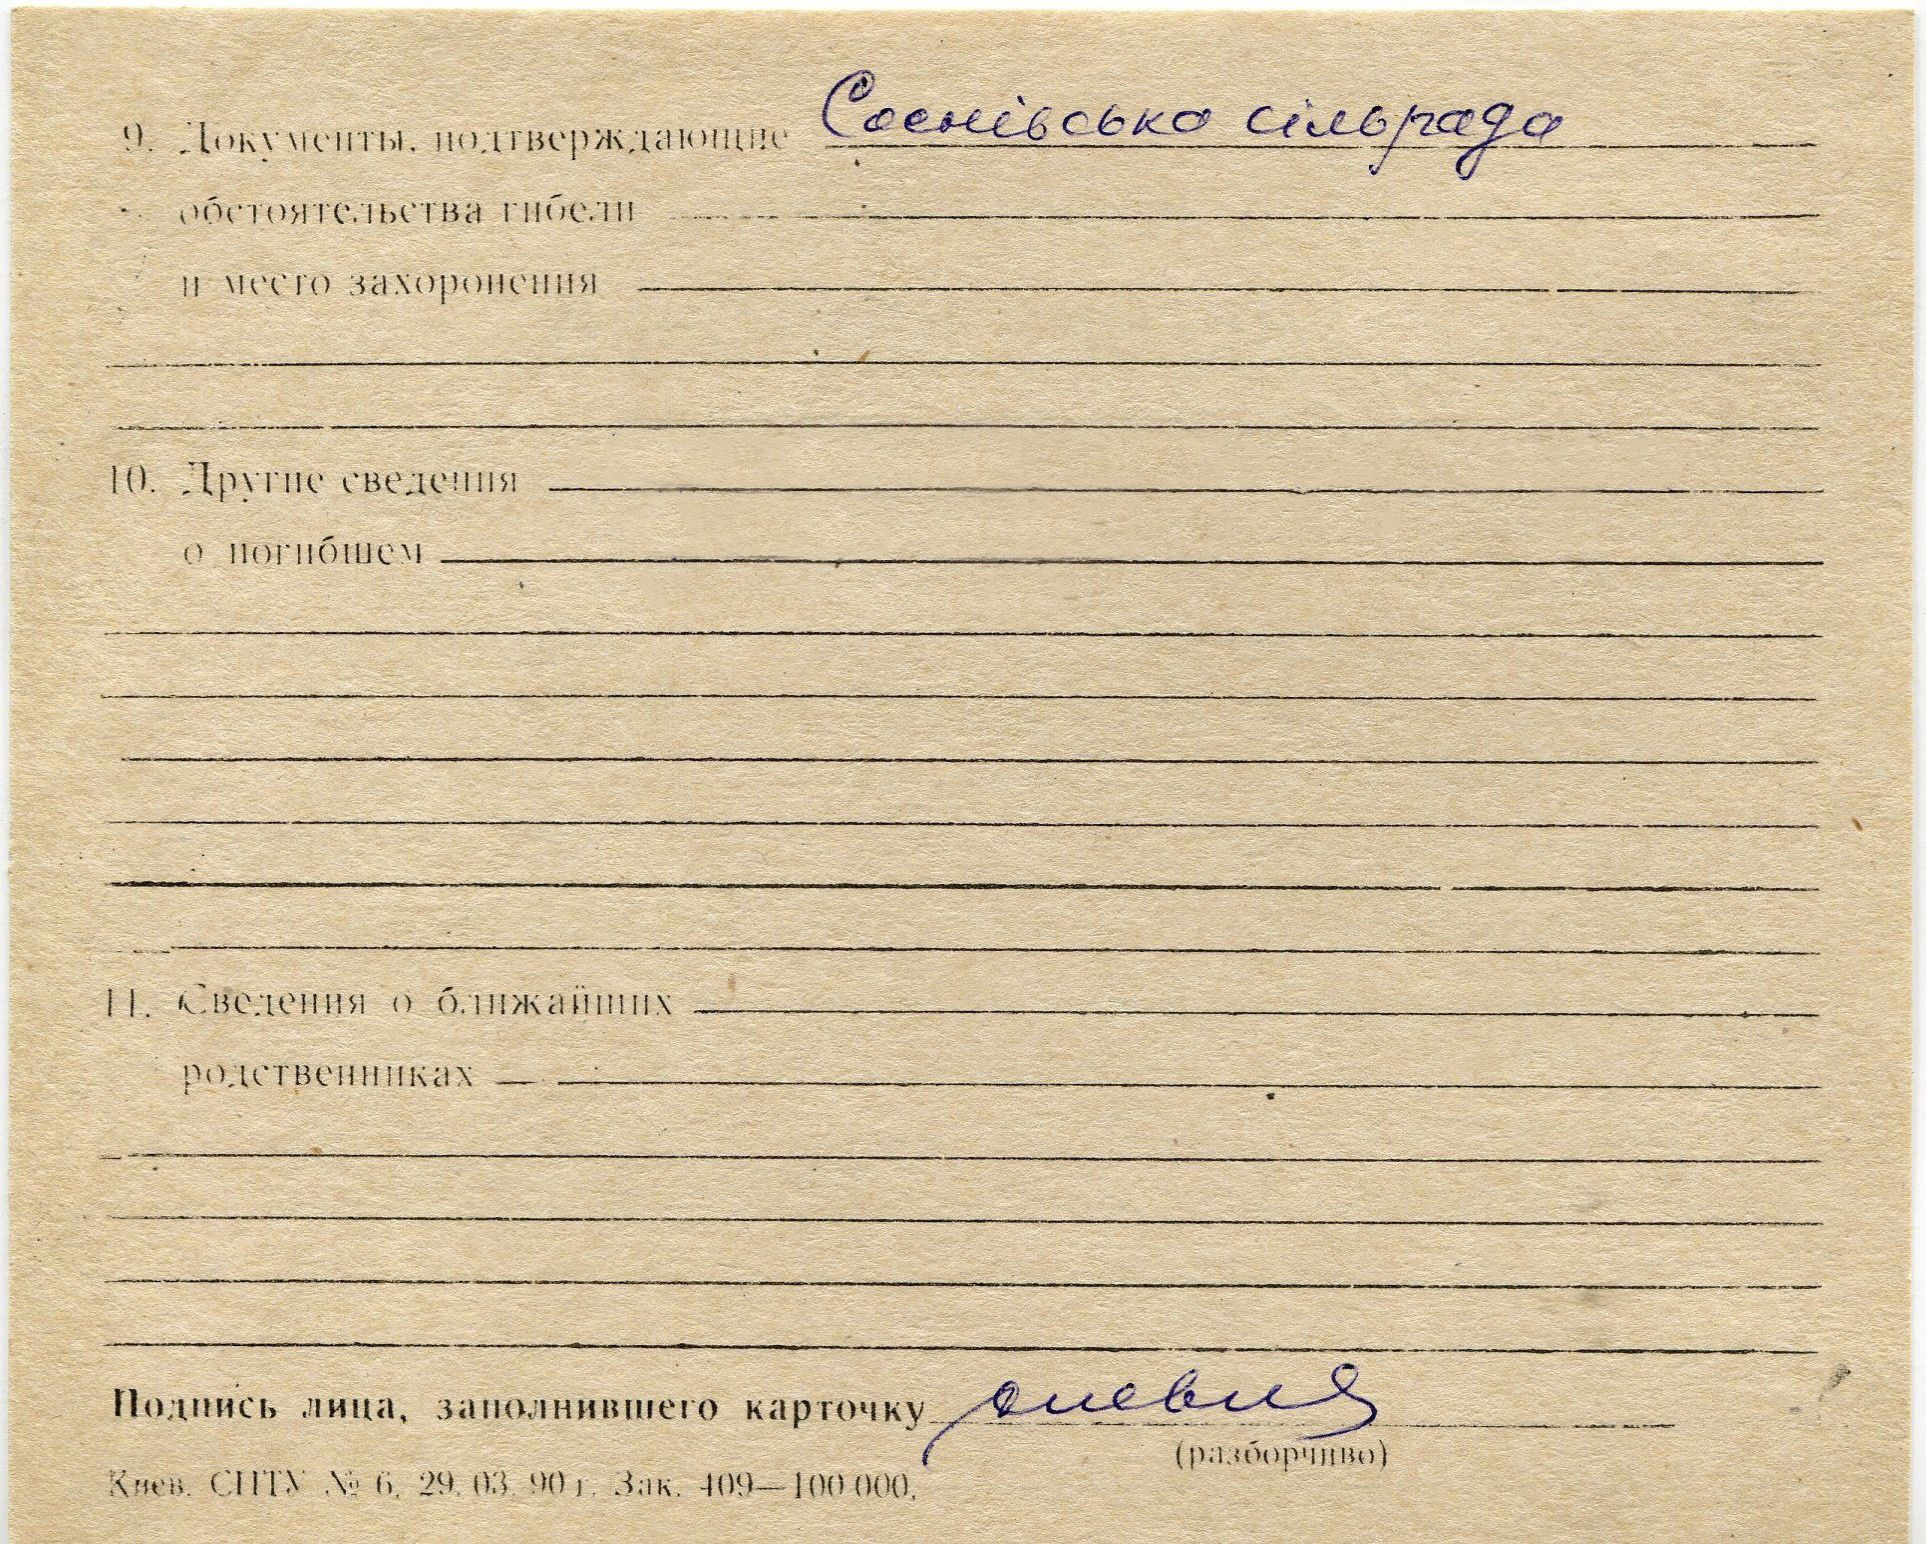 9. Документы, подтверждающие Соснівська сільрада
обстоятельства гибели
и место захоронения
10. Другие сведения
о погибшем
11. Сведения о ближайших
родственниках
Подпись лица, заполнившего карточку
(разборчиво)
Киев. СПТУ № 6. 29. 03. 90 г. Зак. 409—100 000.